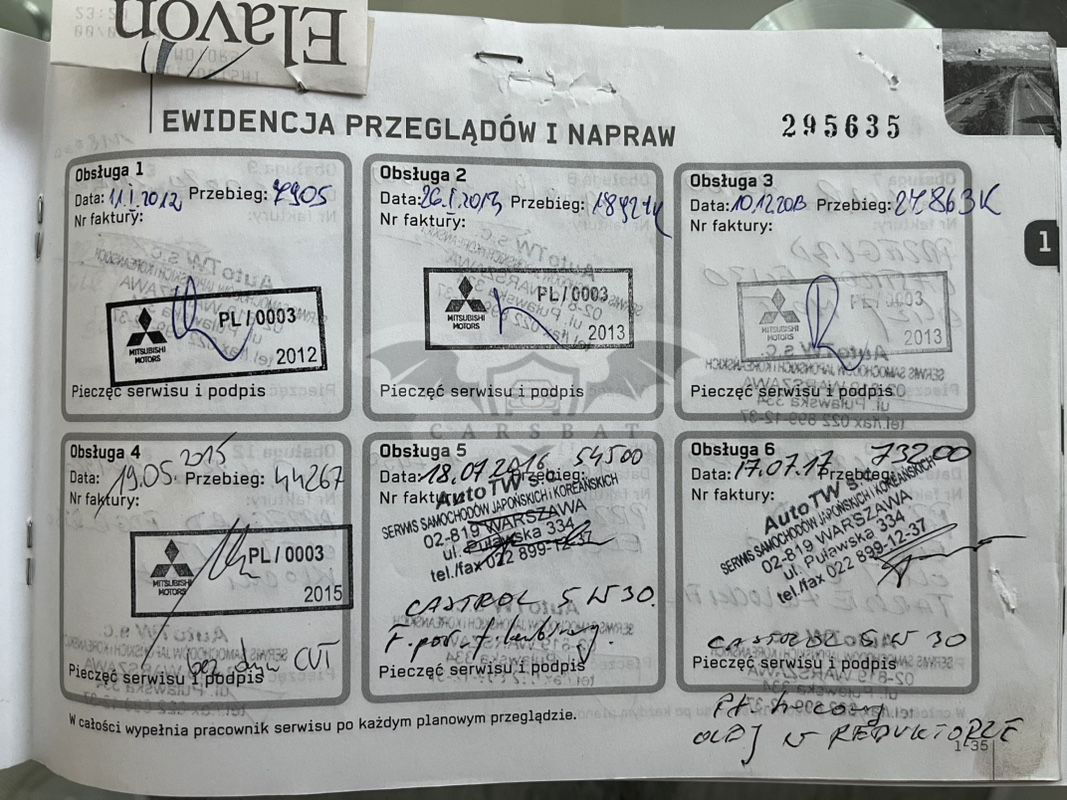 Elavon
EWIDENCJA PRZEGLĄDÓW I NAPRAW
295635
1
Obsługa 1
Data: 11.I.2012 Przebieg: 7905
Nr faktury:
MITSUBISHI MOTORS
PL/0003
2012
Pieczęć serwisu i podpis
Obsługa 2
Data: 26.I.2013 Przebieg:
Nr faktury:
MITSUBISHI MOTORS
PL/0003
2013
Pieczęć serwisu i podpis
Obsługa 3
Data: 10.12.2013 Przebieg: 27863K
Nr faktury:
MITSUBISHI MOTORS
PL/0003
2013
Pieczęć serwisu i podpis
CARSBAT
Obsługa 4
Data: 19.05.2015 Przebieg: 44267
Nr faktury:
MITSUBISHI MOTORS
PL/0003
2015
bez CVT
Pieczęć serwisu i podpis
Obsługa 5
Data: 18.07.2016 Przebieg: 54500
Nr faktury:
Auto TW s.c.
SERWIS SAMOCHODÓW JAPOŃSKICH i KOREAŃSKICH
02-819 WARSZAWA
ul. Puławska 334
tel./fax 022 899-12-37
CASTROL 5W30.
Pieczęć serwisu i podpis
Obsługa 6
Data: 17.07.17 Przebieg: 73200
Nr faktury:
Auto TW s.c.
SERWIS SAMOCHODÓW JAPOŃSKICH i KOREAŃSKICH
02-819 WARSZAWA
ul. Puławska 334
tel./fax 022 899-12-37
CASTROL 5W30
Pieczęć serwisu i podpis
OLEJ W REDUKTORZE
W całości wypełnia pracownik serwisu po każdym planowym przeglądzie.
1-35